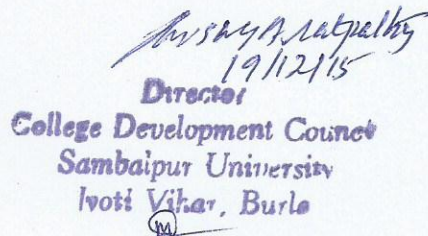 19/12/15
Director
College Development Council
Sambalpur University
Jyoti Vihar, Burla